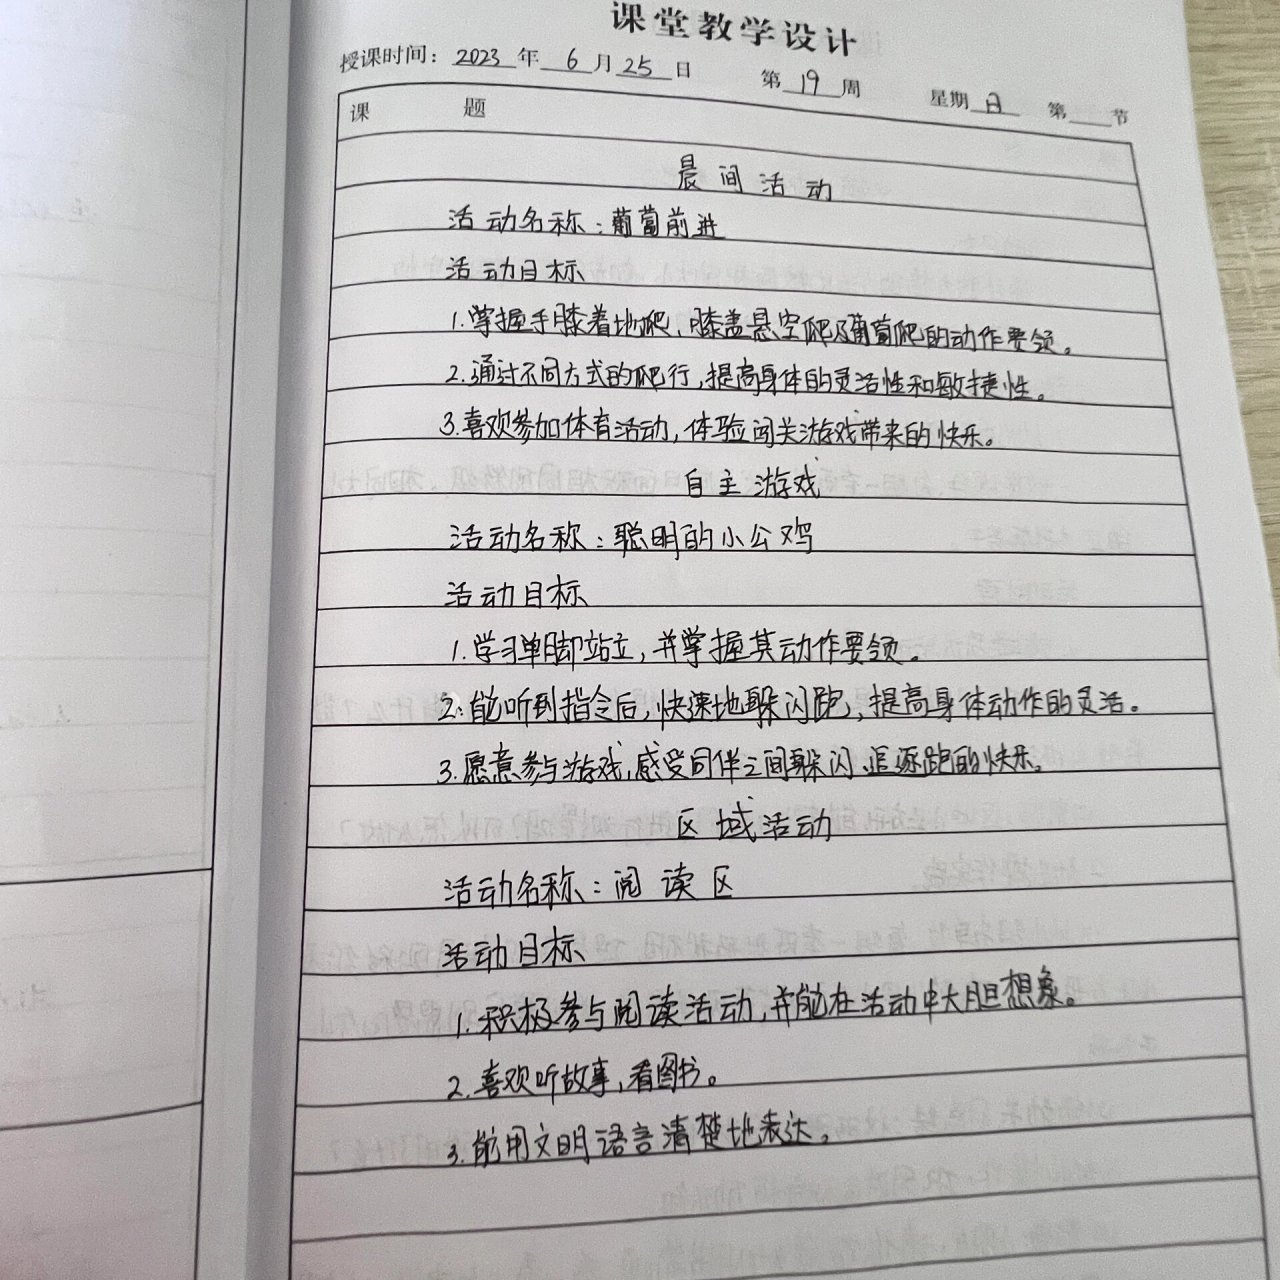 课堂教学设计
授课时间：2023年6月25日 第19周 星期日 第 节
课 题
晨间活动
活动名称：葡萄前进
活动目标
1.掌握手膝着地爬、膝盖悬空爬及葡萄爬的动作要领。
2.通过不同方式的爬行，提高身体的灵活性和敏捷性。
3.喜欢参加体育活动，体验闯关游戏带来的快乐。
自主游戏
活动名称：聪明的小公鸡
活动目标
1.学习单脚站立，并掌握其动作要领。
2.能听到指令后，快速地躲闪跑，提高身体动作的灵活。
3.愿意参与游戏，感受同伴之间躲闪、追逐跑的快乐。
区域活动
活动名称：阅读区
活动目标
1.积极参与阅读活动，并能在活动中大胆想象。
2.喜欢听故事，看图书。
3.能用文明语言清楚地表达。